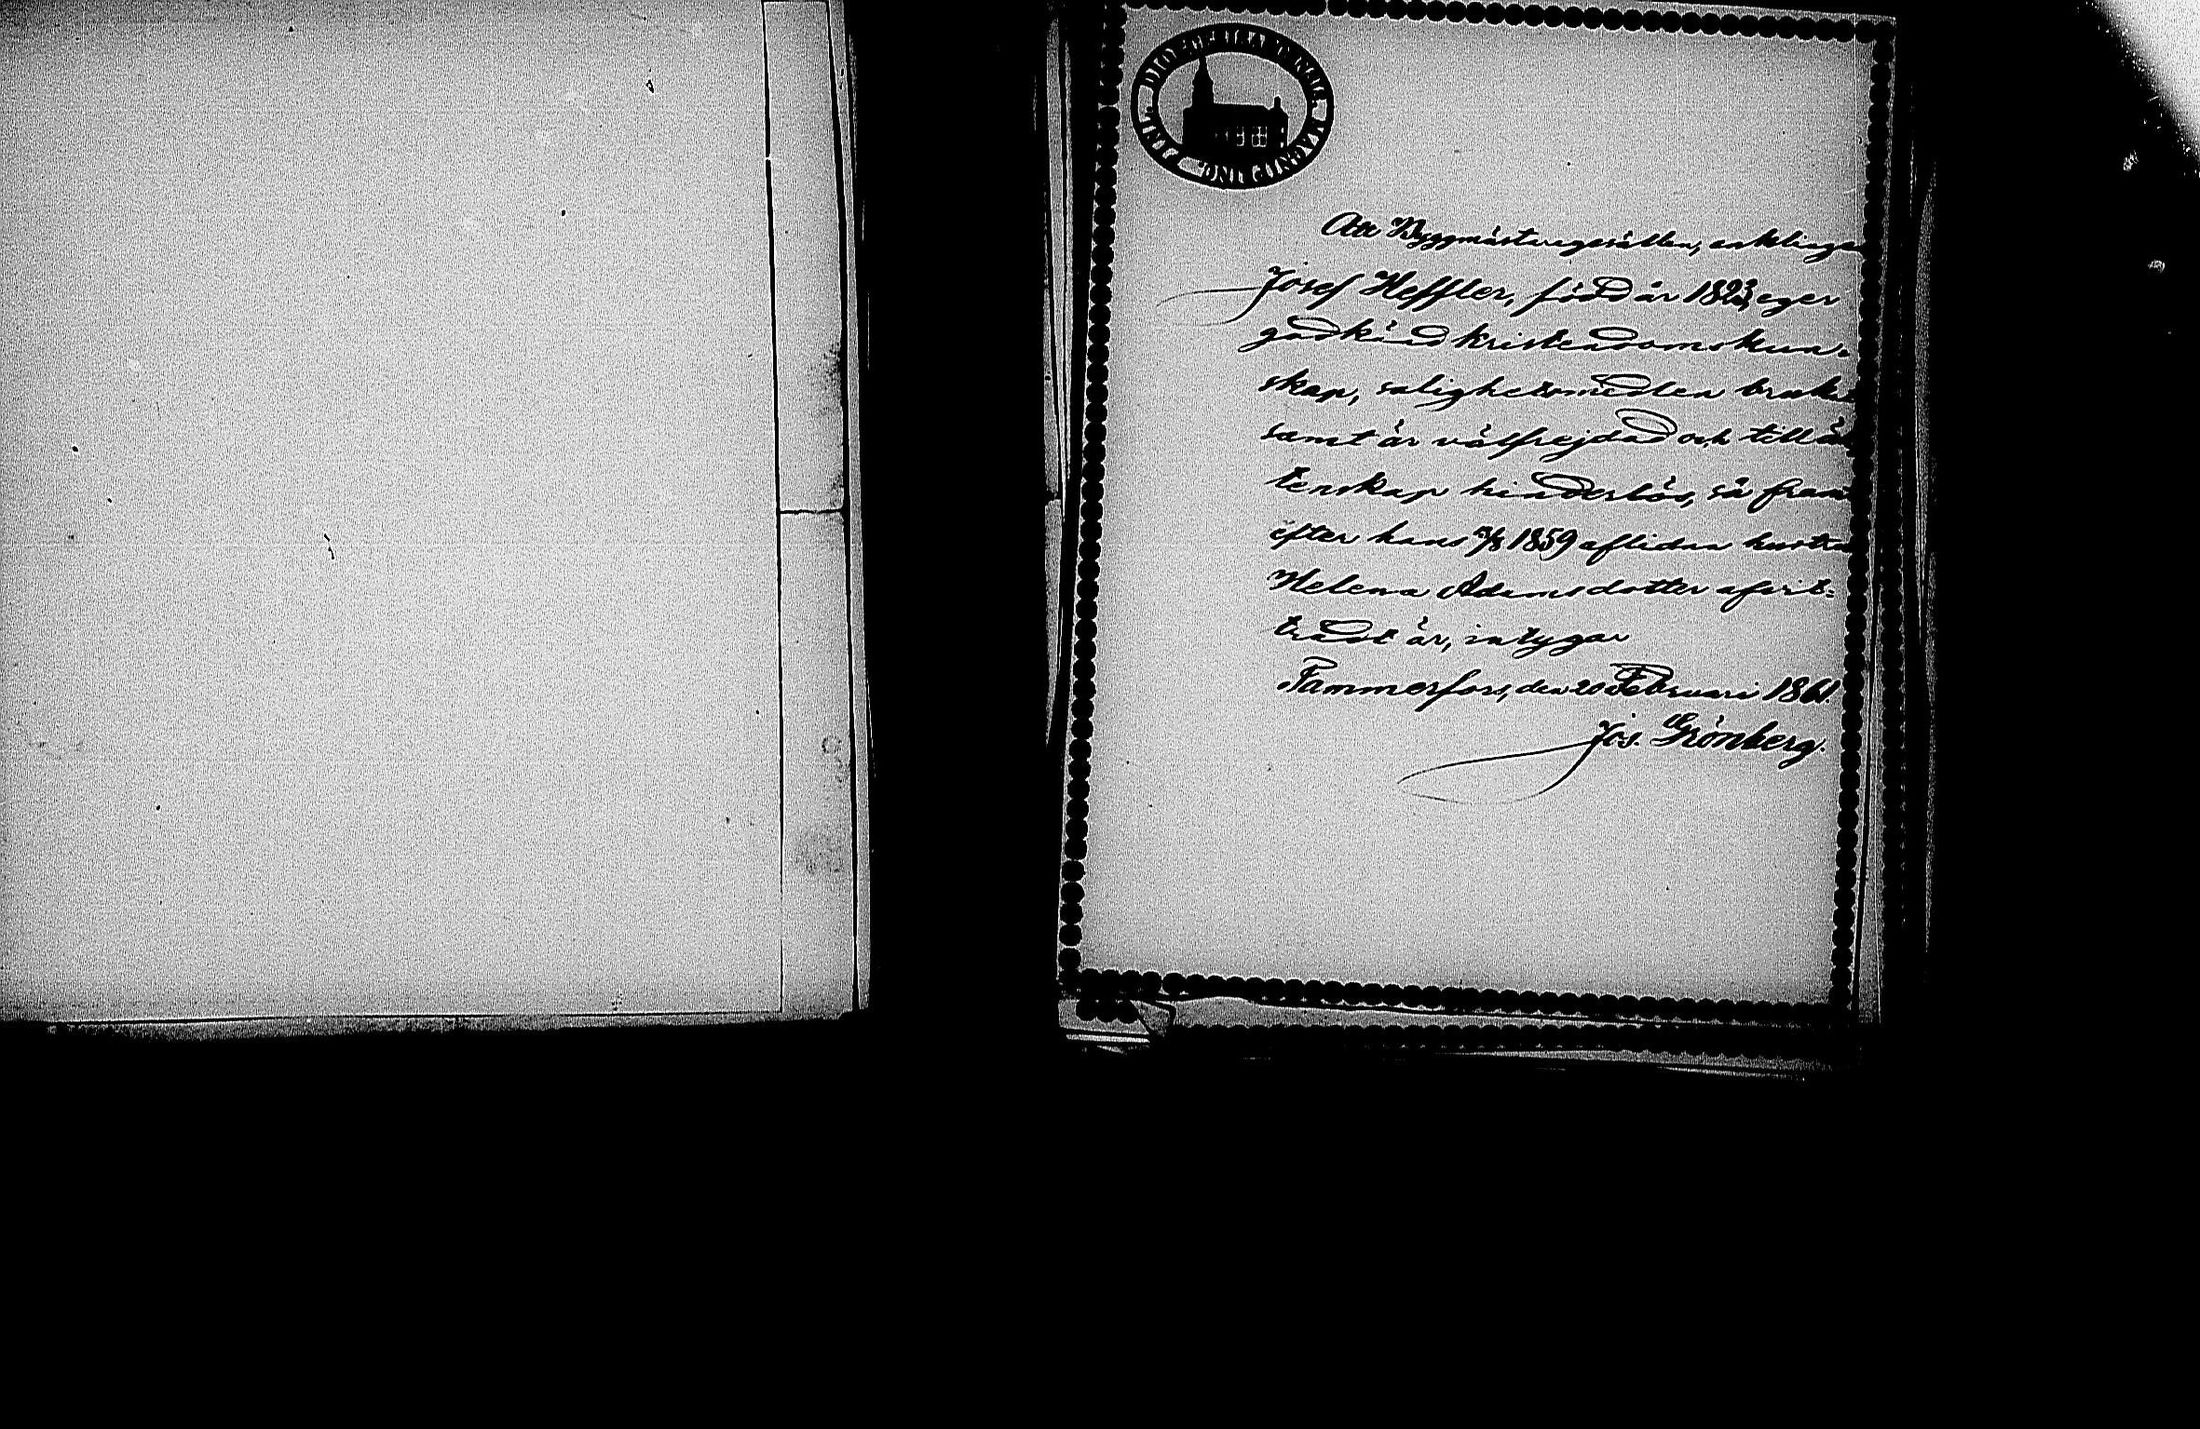 Att Byggmästaregesällen, enklingen
Josef Heffler, född år 1823, eger
godkänd kristendomskun-
skap, salighetsmedlen brukat
samt är välfrejdad och till äk
tenskap hinderlös, så fram
efter hans 1859 aflidna hustru
Helena Adamsdotter afvit-
tradt är, intygar
Tammerfors, den 20 Februari 1861.
Jos. Grönberg.